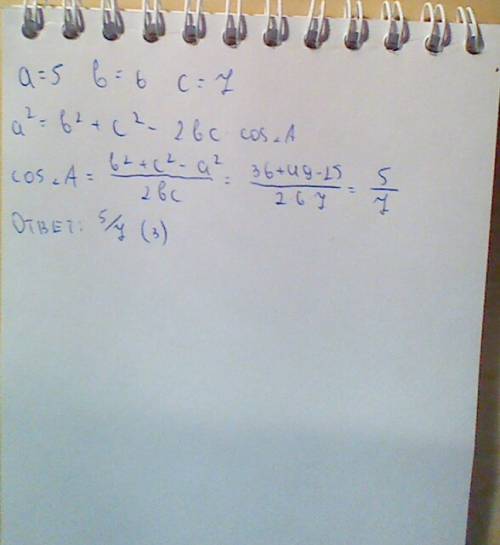 a=5 в=6 c=7
a²=в²+c²- 2вc cos∠A
cos∠A= (в²+c²-a²)/(2вc) = (36+49-25)/(2 6 7) = 5/7
ОТВЕТ: 5/7 (3)